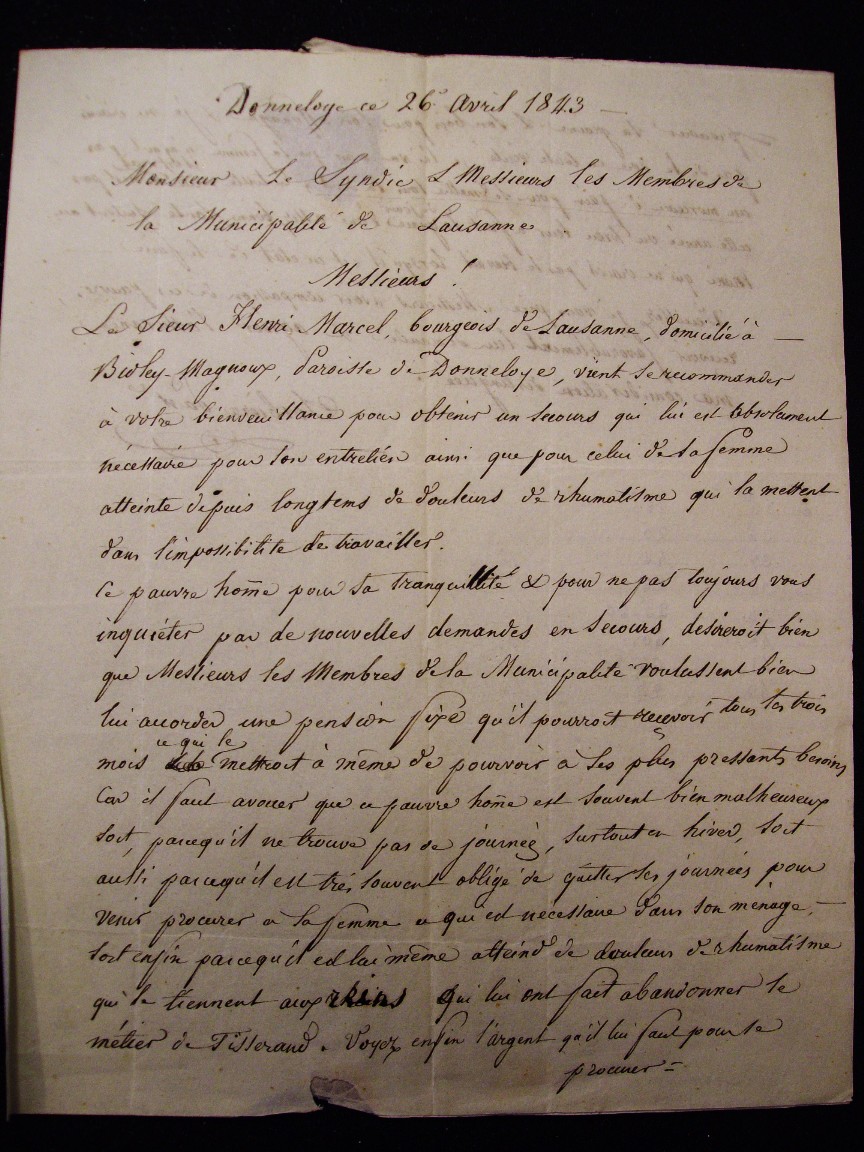 Donneloye ce 26 Avril 1843 —
Monsieur Le Syndic & Messieurs les Membres de
la Municipalité de Lausanne.
Messieurs !
Le Sieur Henri Marcel, bourgeois de Lausanne, domicilié à —
Bioley-Magnoux, Paroisse de Donneloye, vient se recommander
à votre bienveuillance pour obtenir un secours qui lui est absolument
nécessaire pour son entretien ainsi que pour celui de sa femme
atteinte depuis longtems de douleurs de rhumatisme qui la mettent
dans l'impossibilité de travailler.
Ce pauvre hom̄e pour sa tranquillité & pour ne pas toujours vous
inquiéter par de nouvelles demandes en secours, désireroit bien
que Messieurs les Membres de la Municipalité voulussent bien
lui accorder une pension fixe qu'il pourroit recevoir tous les trois
mois ce qui le mettroit à même de pourvoir à ses plus pressants besoins
Car il faut avouer que ce pauvre hom̄e est souvent bien malheureux
soit, parcequ'il ne trouve pas de journée, surtout en hiver, soit
aussi parcequ'il est très souvent obligé de quitter ses journées pour
venir procurer à sa femme ce qui est nécessaire dans son ménage, —
soit enfin parcequ'il est lui même atteind de douleurs de rhumatisme
qui le tiennent aux rhins & qui lui ont fait abandonner le
métier de Tisserand. Voyez enfin l'argent qu'il lui faut pour se
procurer =